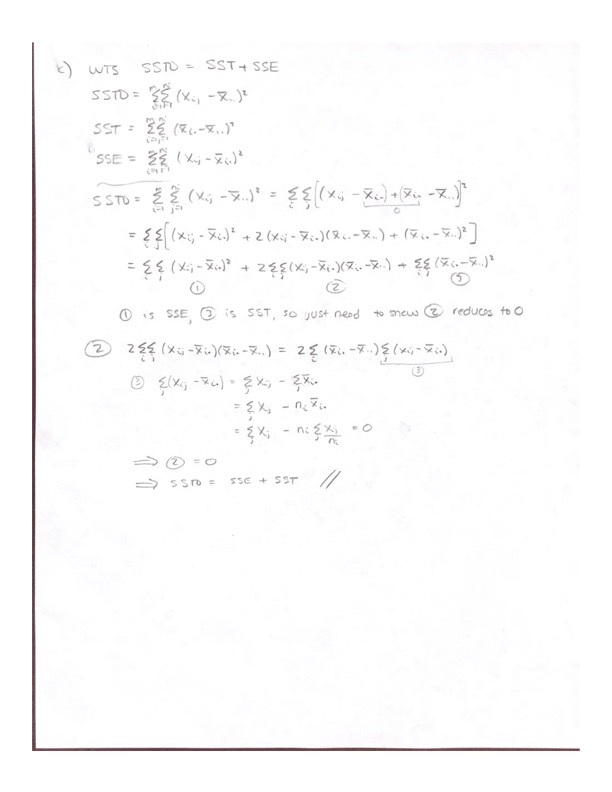 c) WTS SSTO = SST + SSE
SSTO = Σ_{i=1}^{m} Σ_{j=1}^{n_i} (X_{ij} - X̄..)²
SST = Σ_{i=1}^{m} Σ_{j=1}^{n_i} (X̄_{i.} - X̄..)²
SSE = Σ_{i=1}^{m} Σ_{j=1}^{n_i} (X_{ij} - X̄_{i.})²
SSTO = Σ_{i=1}^{m} Σ_{j=1}^{n_i} (X_{ij} - X̄..)² = Σ_i Σ_j [(X_{ij} - X̄_{i.}) + (X̄_{i.} - X̄..)]²
0
= Σ_i Σ_j [(X_{ij} - X̄_{i.})² + 2(X_{ij} - X̄_{i.})(X̄_{i.} - X̄..) + (X̄_{i.} - X̄..)²]
= Σ_i Σ_j (X_{ij} - X̄_{i.})² + 2ΣΣ(X_{ij} - X̄_{i.})(X̄_{i.} - X̄..) + Σ_i Σ_j (X̄_{i.} - X̄..)²
① ② ③
① is SSE, ③ is SST, so just need to show ② reduces to 0
② 2Σ_i Σ_j (X_{ij} - X̄_{i.})(X̄_{i.} - X̄..) = 2Σ_i (X̄_{i.} - X̄..) Σ_j (X_{ij} - X̄_{i.})
③
③ Σ_j (X_{ij} - X̄_{i.}) = Σ_j X_{ij} - Σ_j X̄_{i.}
= Σ_j X_{ij} - n_i X̄_{i.}
= Σ_j X_{ij} - n_i Σ_j X_{ij}/n_i = 0
⟹ ② = 0
⟹ SSTO = SSE + SST //